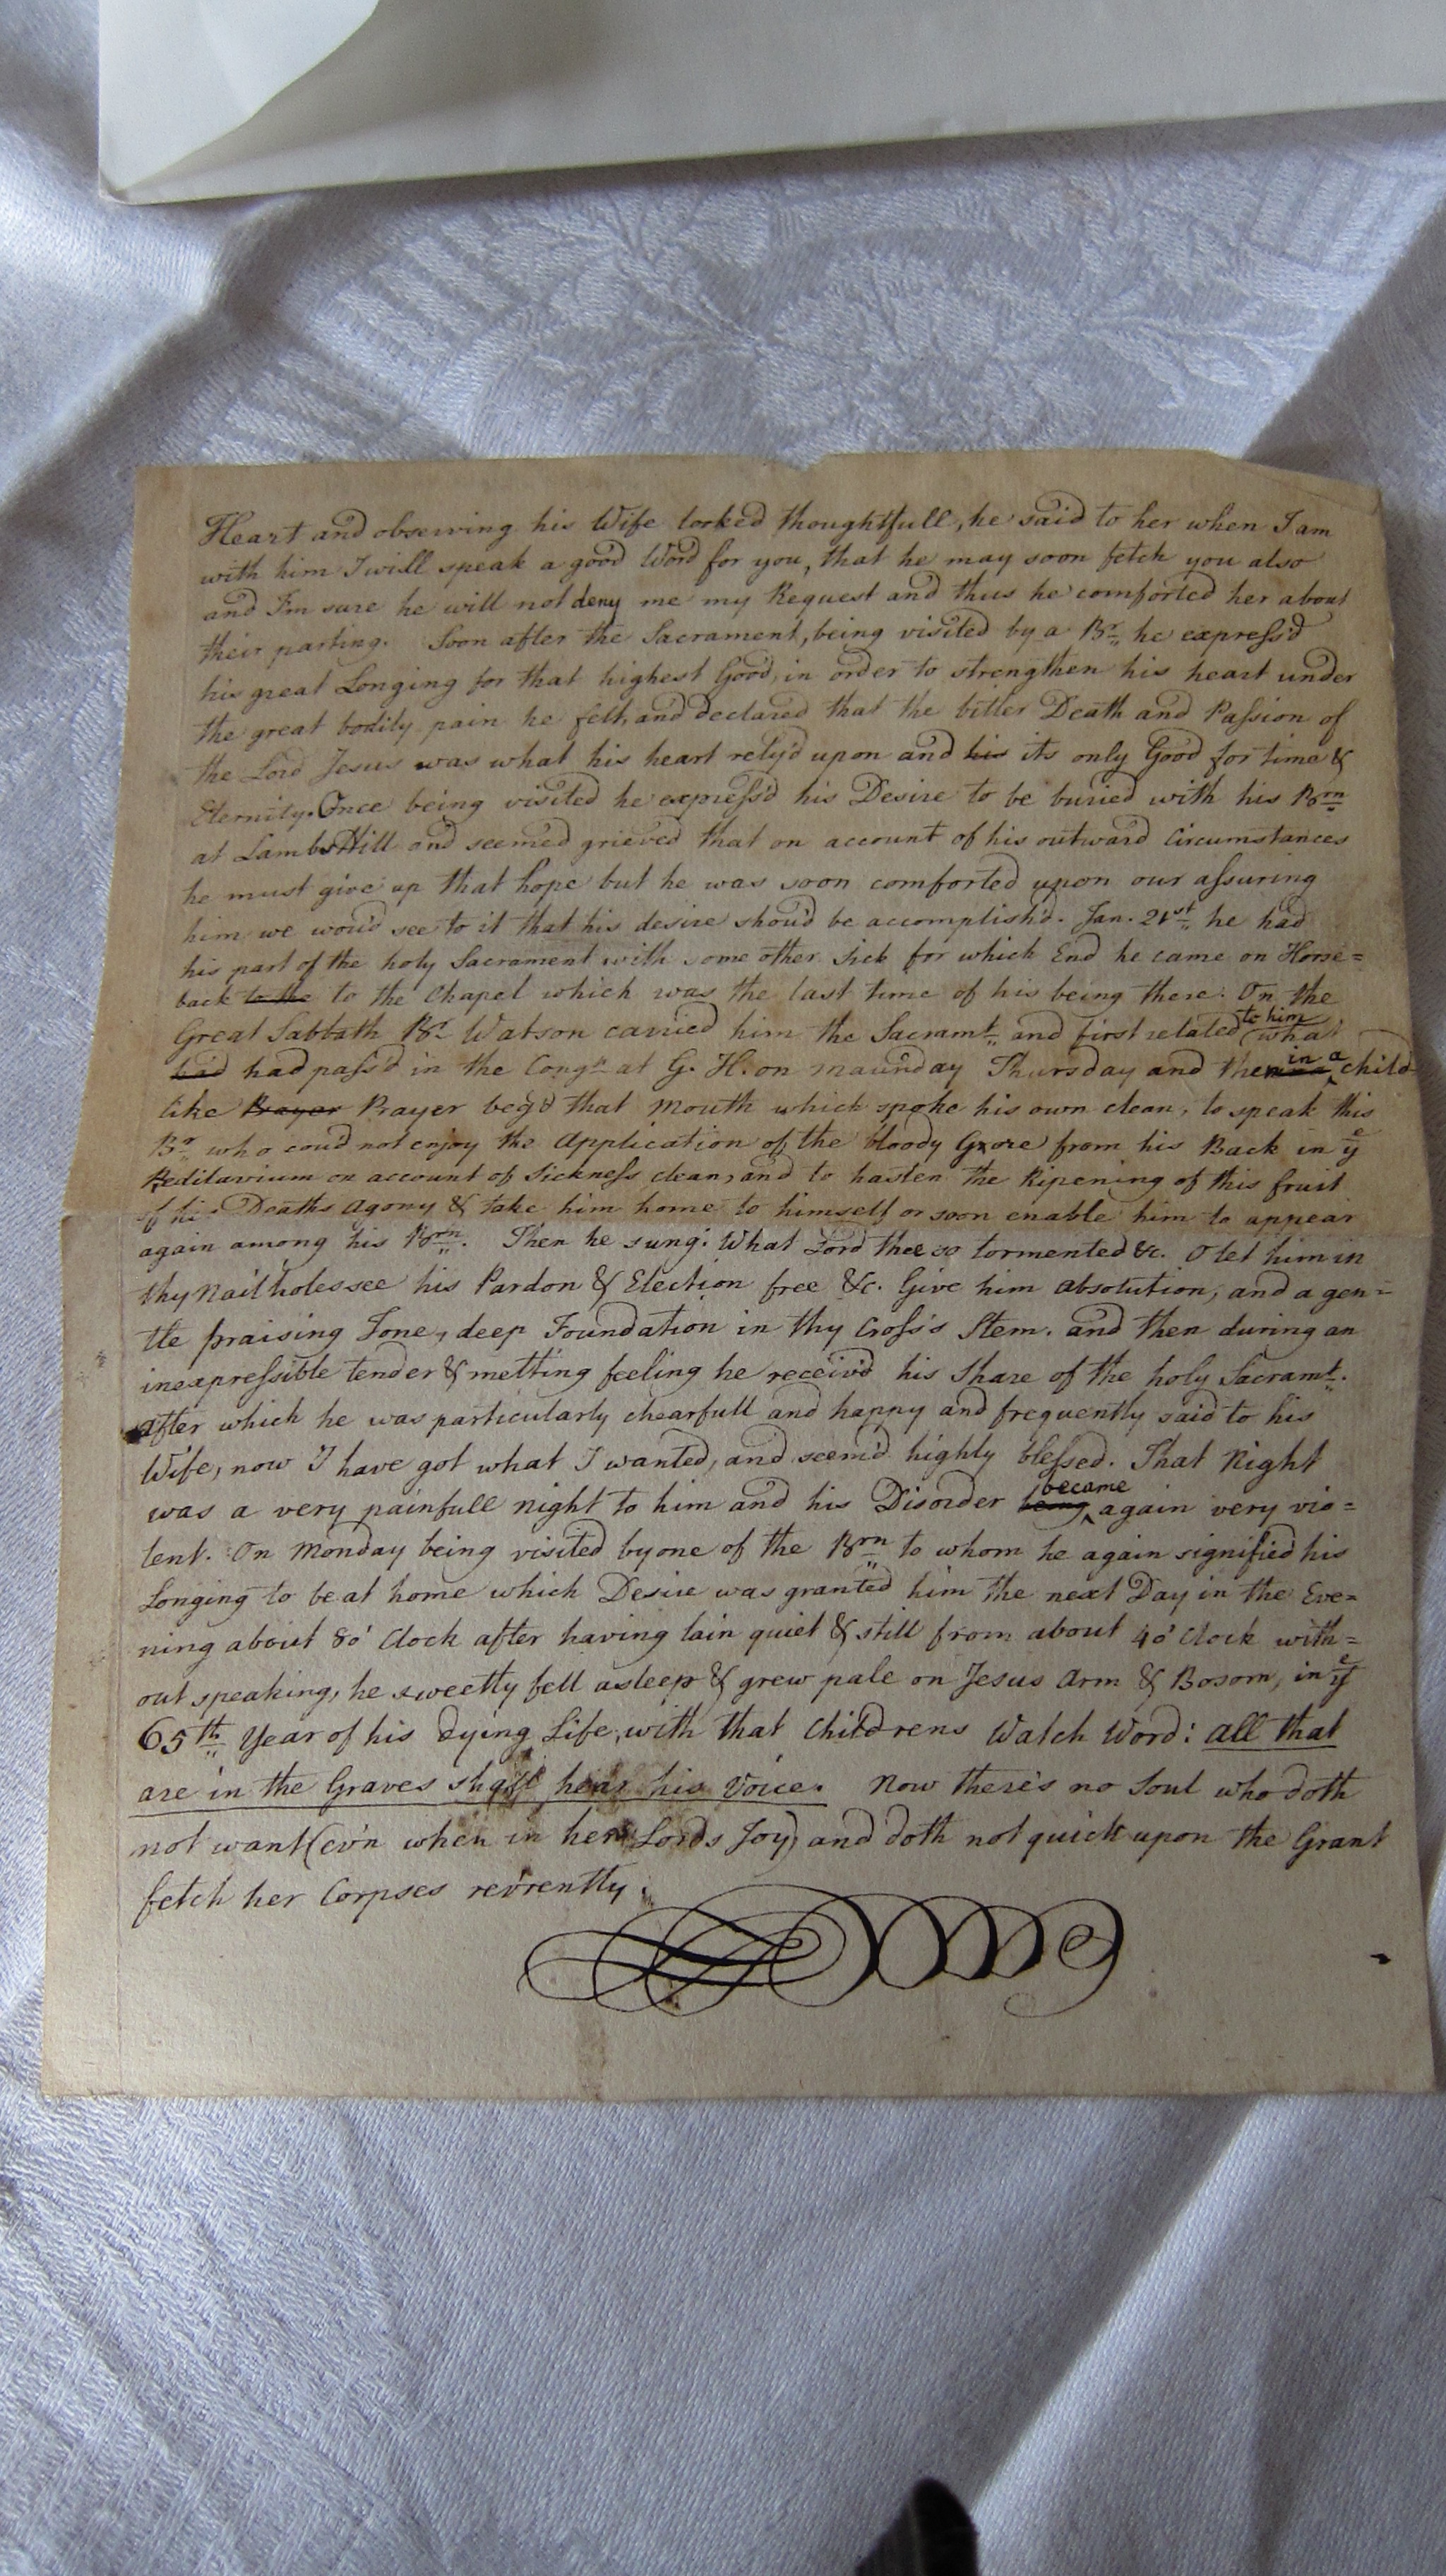 Heart and observing his Wife looked thoughtfull, he said to her when I am
with him I will speak a good Word for you, that he may soon fetch you also
and I'm sure he will not deny me my Request and thus he comforted her about
their parting. Soon after the Sacrament, being visited by a Br. he express'd
his great Longing for that highest Good, in order to strengthen his heart under
the great bodily pain he felt, and declared that the bitter Death and Passion of
the Lord Jesus was what his heart rely'd upon and his its only Good for time &
Eternity. Once being visited he express'd his Desire to be buried with his Brn
at Lambs Hill and seemed grieved that on account of his outward Circumstances
he must give up that hope but he was soon comforted upon our assuring
him we wou'd see to it that his desire shou'd be accomplish'd. Jan. 21st he had
his part of the holy Sacrament with some other Sick for which End he came on Horse=
back to the to the Chapel which was the last time of his being there. On the
Great Sabbath Br. Watson carried him the Sacramt. and first related to him what
had had pass'd in the Congn. at G. H. on Maunday Thursday and then in a child
like Prayer Prayer beg'd that Mouth which spoke his own clean, to speak this
Br. who coud not enjoy the Application of the bloody Gore from his Back in ye
Peditavium on account of Sickness clean, and to hasten the Ripening of this fruit
of his Deaths Agony & take him home to himself or soon enable him to appear
again among his Brn. Then he sung: What Lord thee so tormented &c. O let him in
thy Nail holes see his Pardon & Election free &c. Give him absolution, and a gen=
tle praising Tone, deep Foundation in thy Cross's Stem. and then during an
inexpressible tender & melting feeling he receiv'd his Share of the holy Sacramt.
After which he was particularly chearfull and happy and frequently said to his
Wife, now I have got what I wanted, and seem'd highly blessed. That Night
was a very painfull night to him and his Disorder being became again very vio=
lent. On Monday being visited by one of the Brn to whom he again signified his
Longing to be at home which Desire was granted him the next Day in the Eve=
ning about 8 o'Clock after having lain quiet & still from about 4 o'Clock with=
out speaking, he sweetly fell asleep & grew pale on Jesus Arm & Bosom, in ye
65th Year of his dying Life, with that Childrens Watch Word: all that
are in the Graves shall hear his Voice. Now there's no Soul who doth
not want (ev'n when in her Lords Joy) and doth not quick upon the Grant
fetch her Corpses rev'rently.